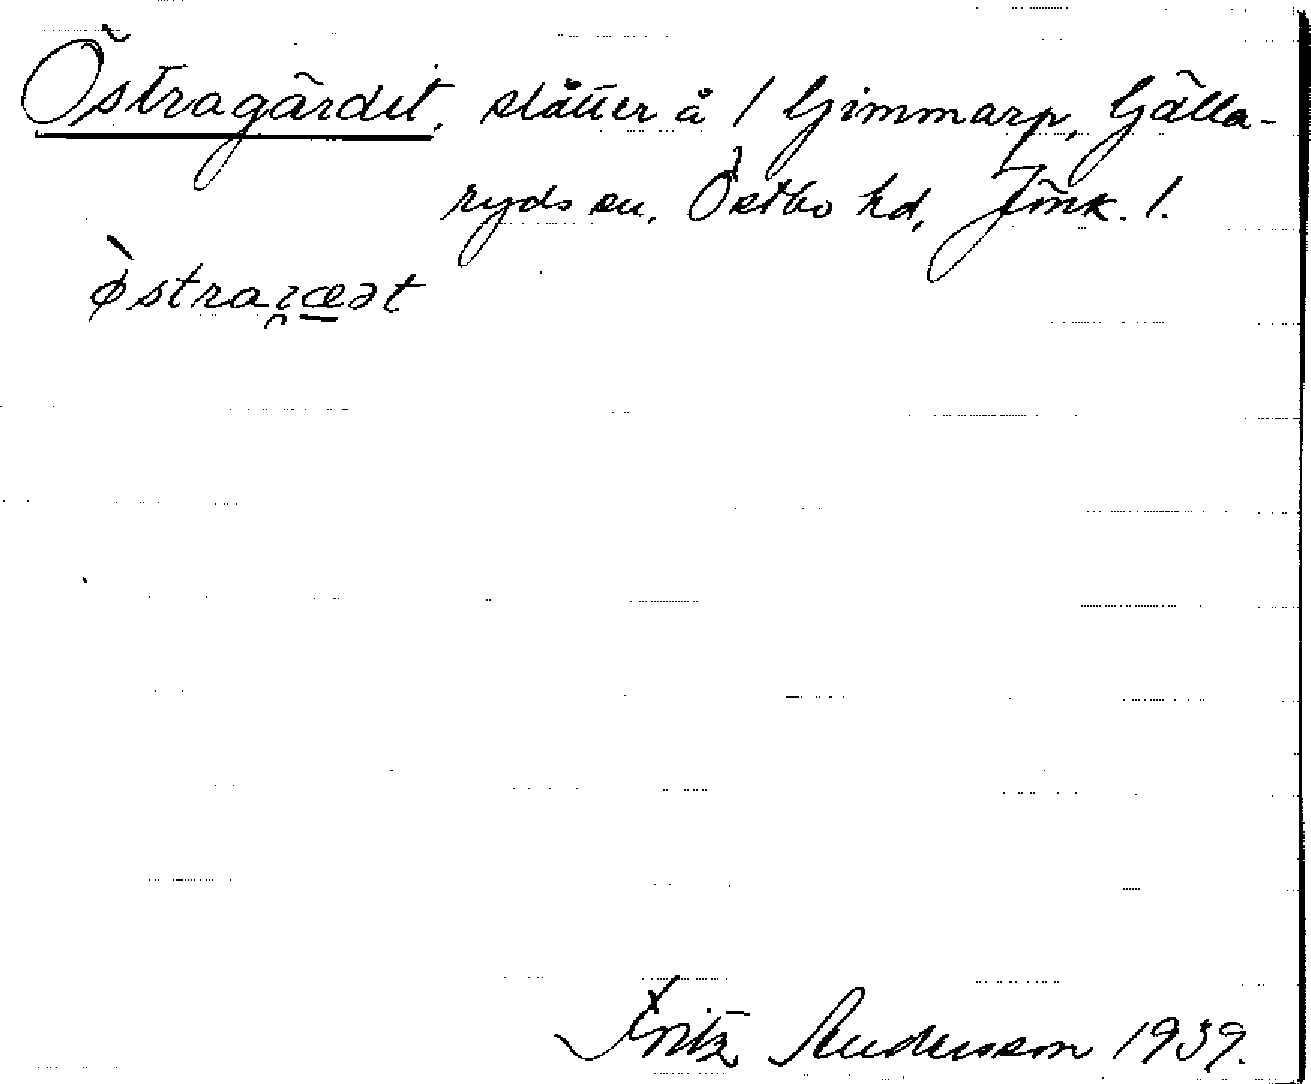 Östragärdet, slåtter å / Gimmarp, Gälla-
ryds sn, Östbo hd, Jönk. l.
Fritz Andersson 1939.